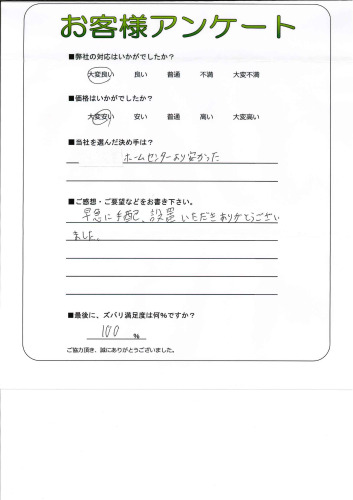 お客様アンケート
■弊社の対応はいかがでしたか？
大変良い 良い 普通 不満 大変不満
■価格はいかがでしたか？
大変安い 安い 普通 高い 大変高い
■当社を選んだ決め手は？
ホームセンターより安かった
■ご感想・ご要望などをお書き下さい。
早急に手配、設置いただきありがとうござい
ました。
■最後に、ズバリ満足度は何%ですか？
100 %
ご協力頂き、誠にありがとうございました。